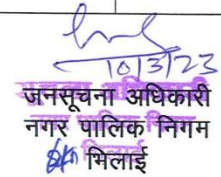 10/3/23
जनसूचना अधिकारी
नगर पालिक निगम
भिलाई